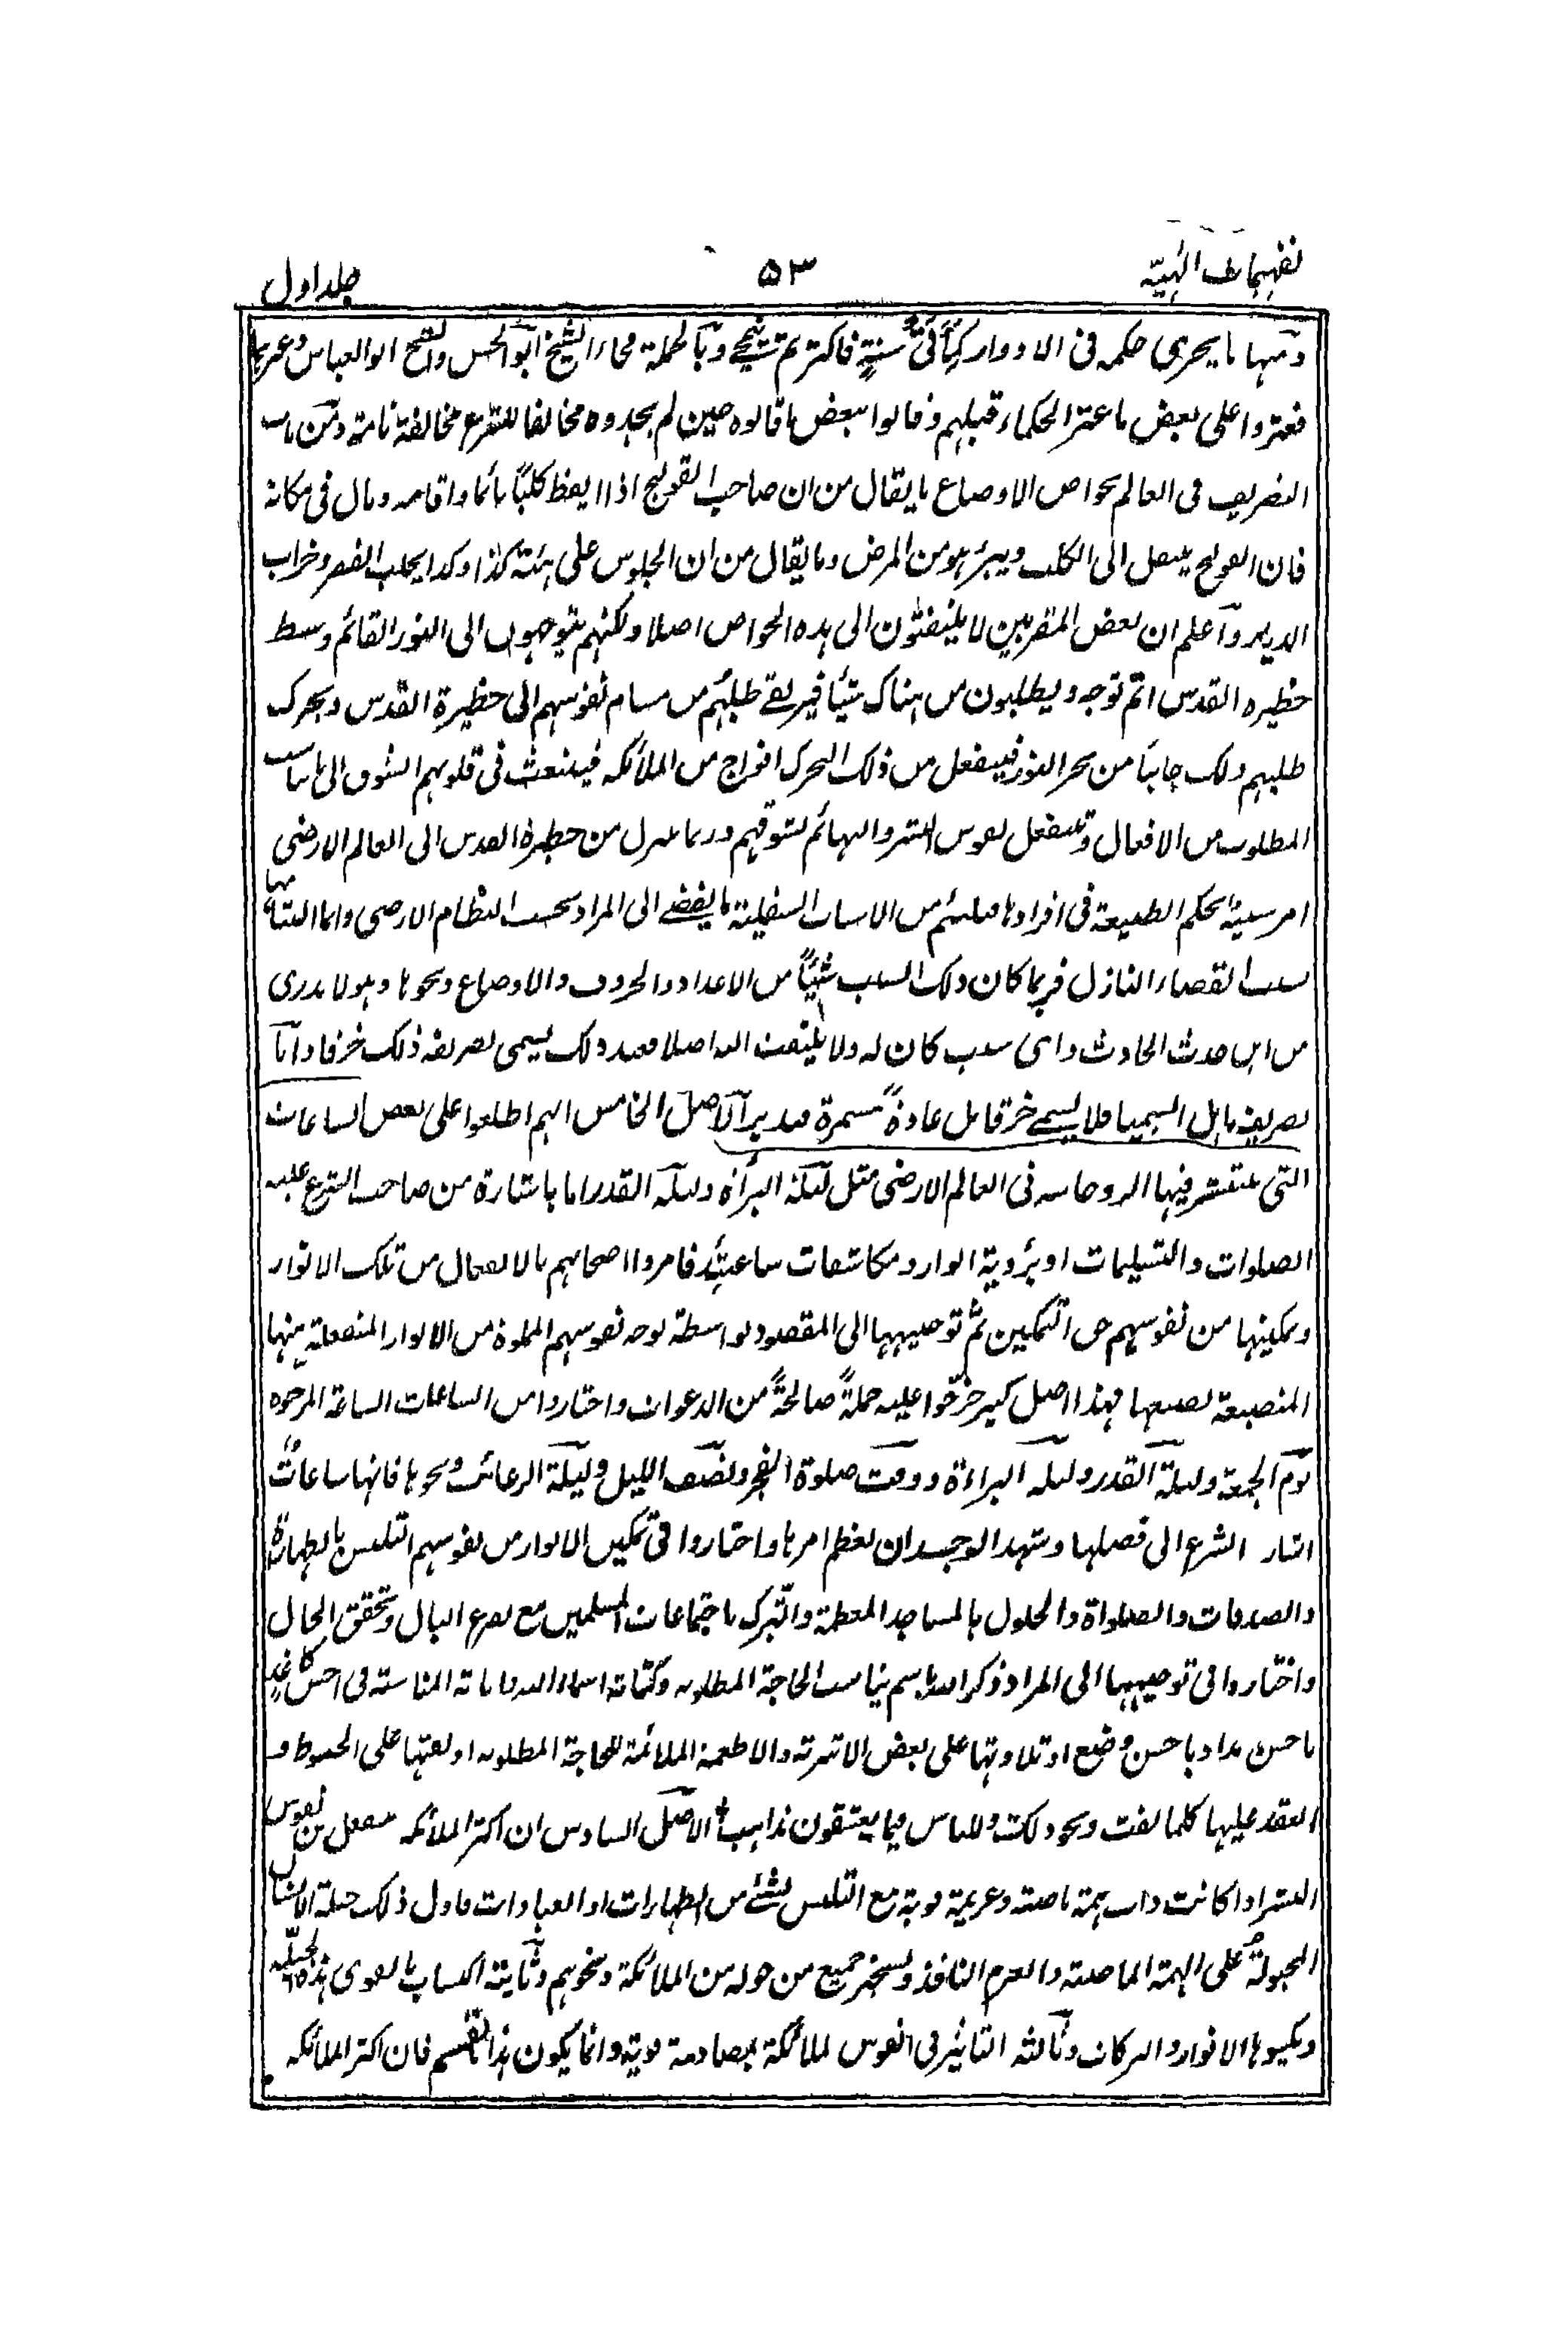 تفہیمات الٰہیّہ ۵۳ جلد اول
ومنہا ما یجری حکمہ فی الادوار کمأئۃ سنۃ فاکثر ثم وبالجملۃ فجاء الشیخ ابوالحسن والشیخ ابوالعباس وغیرہما
فعثروا علی بعض ما عثر الحکماء قبلہم وقالوا ببعض ما قالوہ حین لم یجدوہ مخالفا للشرع مخالفۃ تامۃ ومن باب
التصریف فی العالم بخواص الاوضاع ما یقال من ان صاحب القولنج اذا ایقظ کلبًا نائما واقامہ وبال فی مکانہ
فان القولنج ینتقل الی الکلب ویبرئ ہو من المرض وما یقال من ان الجلوس علی ہیئۃ کذا وکذا یجلب الفقر وخراب
الدیار وآعلم ان بعض المقربین لا یلتفتون الی ہذہ الخواص اصلا ولکنہم یتوجہون الی النور القائم وسط
حظیرہ القدس اتم توجہ ویطلبون من ہناک شیئا فیرتقے طلبہم من مسام نفوسہم الی حظیرۃ القدس ویحرک
طلبہم ذلک جانبا من بحر النور فینفعل من ذلک التحرک افواج من الملأئکہ فینبعث فی قلوبہم الشوق الی ما یناسب
المطلوب من الافعال وتنفعل نفوس البشر والبہائم لشوقہم وربما ینزل من حظیرۃ القدس الی العالم الارضی
امر بحکم الطبیعۃ فی افرادہا من الاسباب السفلیۃ ما یفضے الی المراد بحسب النظام الارضی واما
سبب القضاء النازل فربما کان ذلک السبب شیئًا من الاعداد والحروف والاوضاع ونحوہا وہو لا یدری
من این حدث الحادث وای سبب کان لہ ولا یلتفت الیہ اصلا فعند ذلک یسمی تصریفہ ذلک خرقا وآما
تصریف اہل السیمیا فلا یسمے خرقا بل عادۃً مستمرۃ فتدبر آلاصل الخامس انہم اطلعوا علی بعض الساعات
التی تنتشر فیہا الروحانیہ فی العالم الارضی مثل لیلۃ البرأۃ ولیلہ القدر اما باشارۃ من صاحب الشرع علیہ
الصلوات والتسلیمات او برؤیۃ انوار ومکاشفات ساعتئذ فامروا اصحابہم بالانفعال من تلک الانوار
وتمکینہا من نفوسہم حق التمکین ثم توجیہہا الی المقصود بواسطۃ توجہ نفوسہم المملوۃ من الانوار المنفعلۃ منہا
المنصبغۃ بصبغہا فہذا اصل کبیر خرّجوا علیہ جملۃً صالحۃً من الدعوات واختاروا من الساعات الساعۃ المرجوہ
یوم الجمعۃ ولیلۃ القدر ولیلہ البراءۃ ووقت صلوۃ الفجر ونصف اللیل ولیلۃ الرغائب ونحوہا فانہا ساعات
اشار الشرع الی فضلہا وشہد الوجدان لعظم امرہا واختاروا فی تمکین الانوار من نفوسہم التلبس بالطہارۃ
والصدقات والصلواۃ والحلول بالمساجد المعظمۃ والتبرک باجتماعات المسلمین مع تفرغ البال وتحقق الحال
واختاروا فی توجیہہا الی المراد ذکر اللہ باسم یناسب الحاجۃ المطلوبہ وکتابۃ اسماء اللہ المناسبۃ فی احسن کاغذ
باحسن مداد باحسن وضع او تلاوتہا علی بعض الاشربۃ والاطعمۃ الملائمۃ للحاجۃ المطلوبہ او نفثہا علی الخیوط و
العقد علیہا کلما نفث ونحو ذلک وللناس فیما یعشقون مذاہب الاصل السادس ان اکثر الملأئکہ تنفعل من نفوس
البشر اذا کانت ذات ہمۃ ماضیۃ وعزیمۃ قویۃ مع التلبس بشئے من الطہارات او العبادات فاول ذلک جبلۃ الانسان
المجبولۃ علی الہمۃ الماضیۃ والعزم النافذ وتسخیر جمیع من حولہ من الملأئکۃ ونحوہم وثانیۃ اکتساب بالقوی ہذہ الجبلۃ
ویکسوہا الانوار والبرکات وثالثہ التاثیر فی نفوس الملأئکۃ بمصادمۃ قویۃ وانما یکون ہذا القسم فان اکثر الملأئکہ